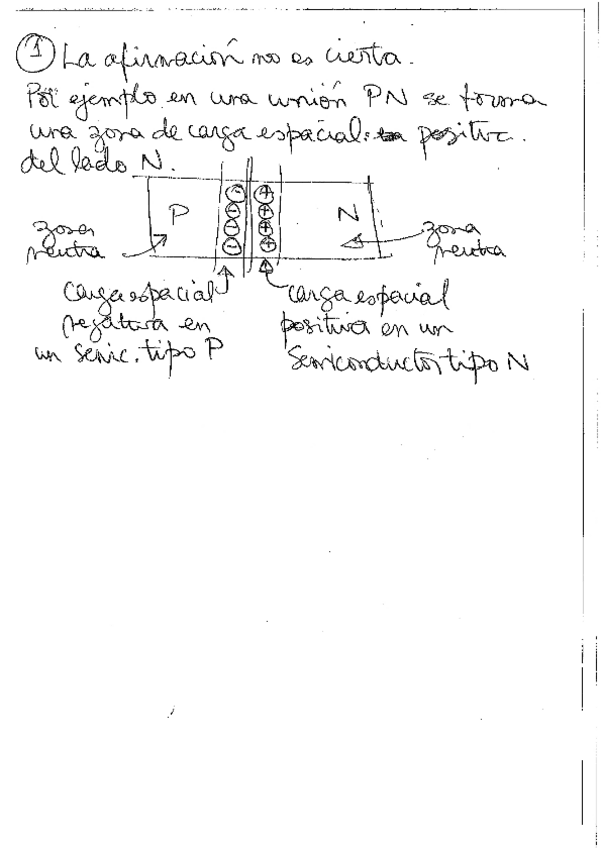 ① La afirmación no es cierta.
Por ejemplo en una unión PN se forma
una zona de carga espacial: positiva
del lado N.
P
N
zona
neutra
zona
neutra
⊖ ⊕
⊖ ⊕
⊖ ⊕
⊖ ⊕
carga espacial
negativa en
un semic. tipo P
carga espacial
positiva en un
semiconductor tipo N